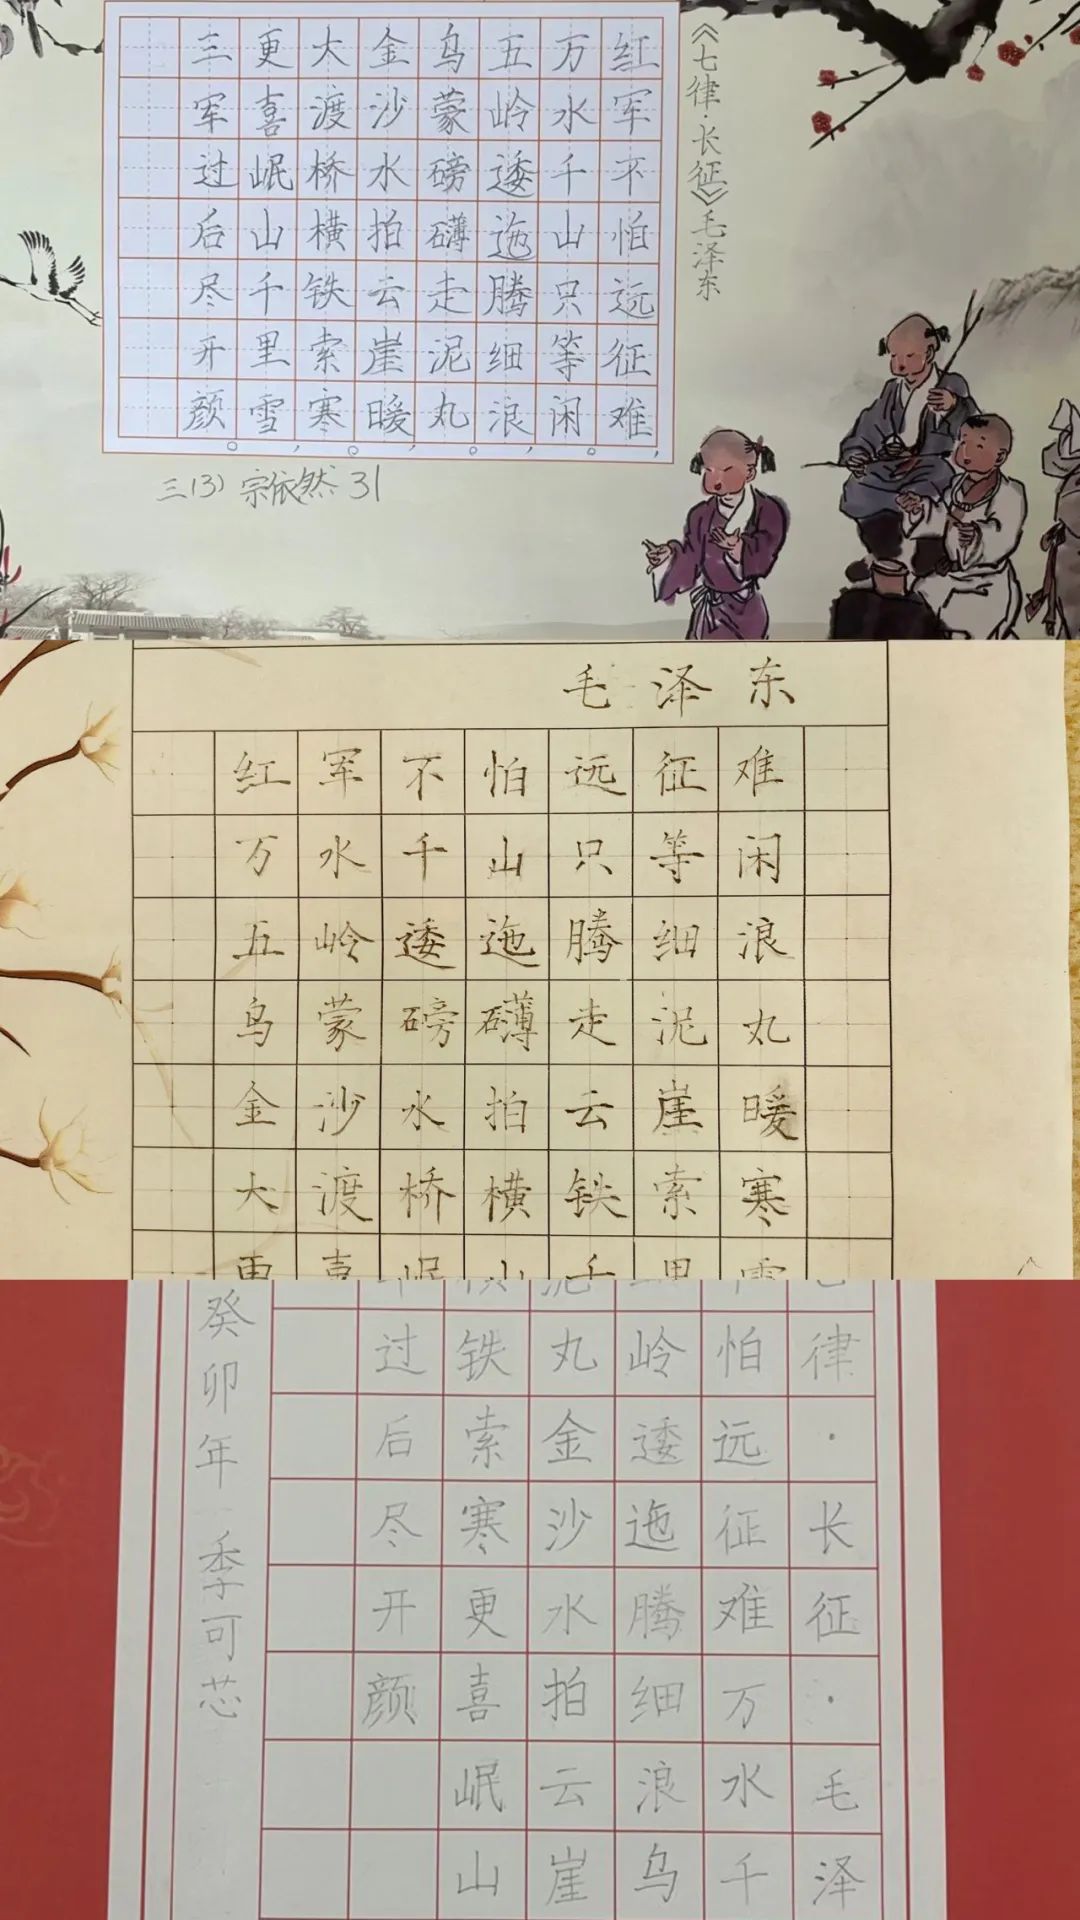 《七律·长征》毛泽东
红军不怕远征难，
万水千山只等闲。
五岭逶迤腾细浪，
乌蒙磅礴走泥丸。
金沙水拍云崖暖，
大渡桥横铁索寒。
更喜岷山千里雪，
三军过后尽开颜。
三(3) 宗依然 31
毛泽东
红军不怕远征难
万水千山只等闲
五岭逶迤腾细浪
乌蒙磅礴走泥丸
金沙水拍云崖暖
大渡桥横铁索寒
更喜岷山千里雪
律·长征·毛泽
怕远征难万水千
岭逶迤腾细浪乌
丸金沙水拍云崖
铁索寒更喜岷山
过后尽开颜
癸卯年 季可芯